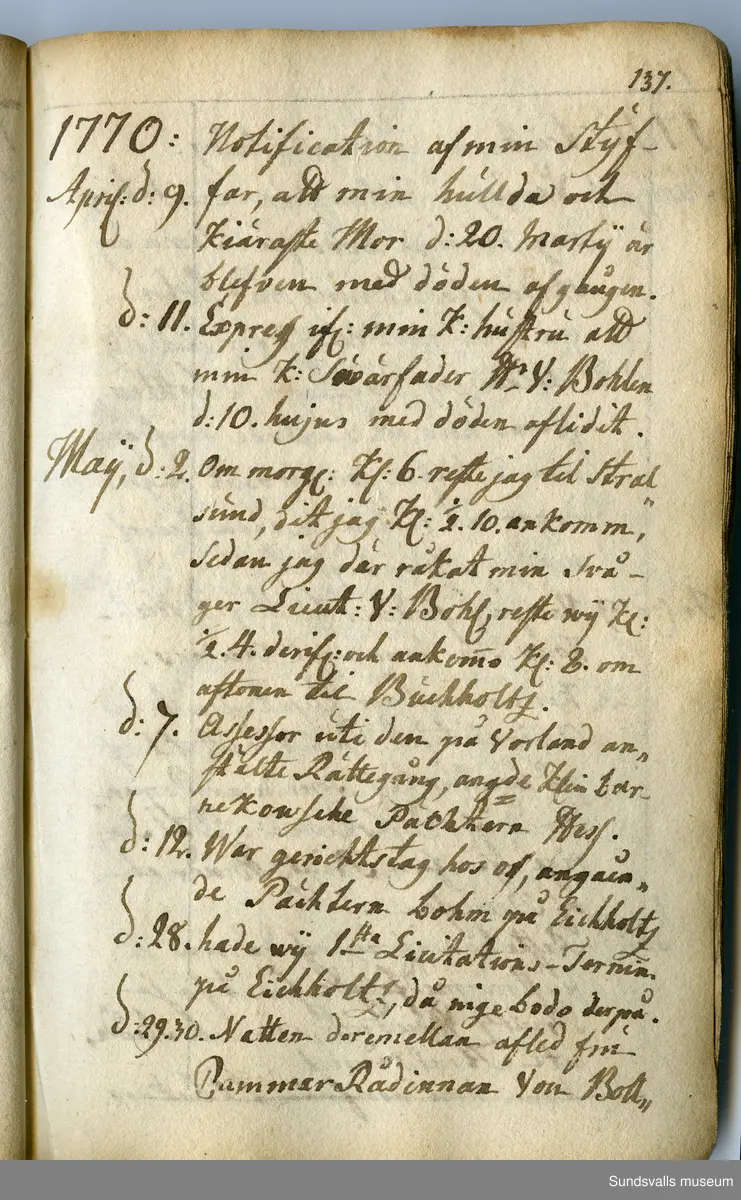 137.
1770: Notification af min Styf-
April: d: 9. far, att min hullda och
Kiäraste Mor d: 20. Martÿ är
blefven med döden afgången.
d: 11. Express ifr: min K: hustru att
min K: Swärfader Hr. V: Bohlen
d: 10. hujus med döden aflidit.
Maÿ, d: 2. Om morg: Kl: 6 reste jag til Stral„
sund, dit jag Kl: ½ 10. ankomm,
sedan jag där råkat min Svå-
ger Lieut: V: Bohl, reste wÿ Kl:
½ 4. derifr: och ankomo Kl: 8. om
aftonen til Buchholtz.
d: 7. Assessor uti den på Vorland an„
stälte Rättegång, angde Klein bar-
nekowsche Pachtern Hess.
d: 12. War gerichtstag hos oss, angåen„
de Pächtern bohm på Eichholtz
d: 28. hade wÿ 1sta Licitations-Termin.
på Eichholtz, då inge bodo derpå.
d: 29.30. Natten deremellan afled fru
Cammar Rådinnan Von Boll„
Sundsvalls museum